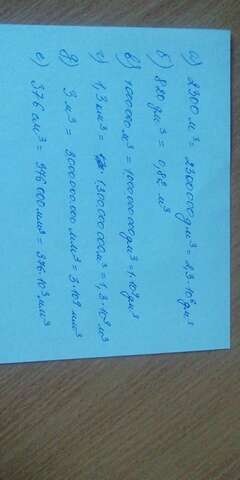 а) 2300 м³ = 2300000 дм³ = 2,3·10⁶ дм³
б) 820 дм³ = 0,82 м³
в) 1000000 м³ = 1000000000 дм³ = 1·10⁹ дм³
г) 1,3 км³ = 1300000000 м³ = 1,3·10⁹ м³
д) 3 м³ = 3000000000 мм³ = 3·10⁹ мм³
е) 376 см³ = 376000 мм³ = 376·10³ мм³